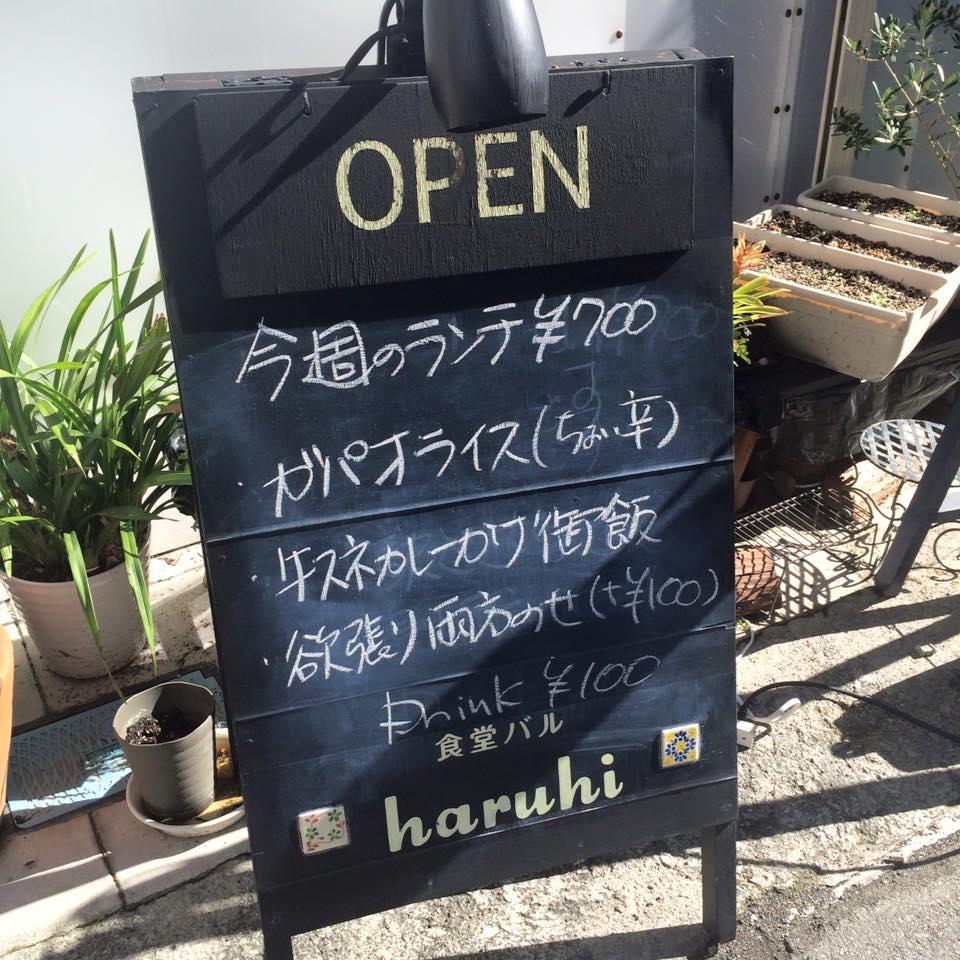 OPEN
今週のランチ¥700
・ガパオライス(ちょい辛)
・牛スネカレーかけ御飯
・欲張り両方のせ(+¥100)
Drink ¥100
食堂バル
haruhi